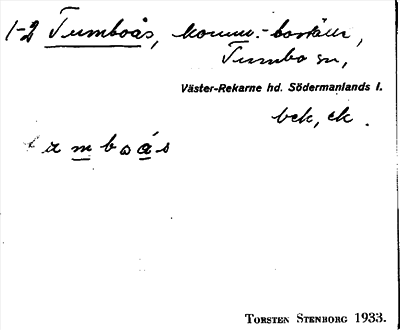 1-2 Tumboås, komm.-boställe,
Tumbo sn,
Väster-Rekarne hd. Södermanlands l.
bck, ck.
tumboás
TORSTEN STENBORG 1933.